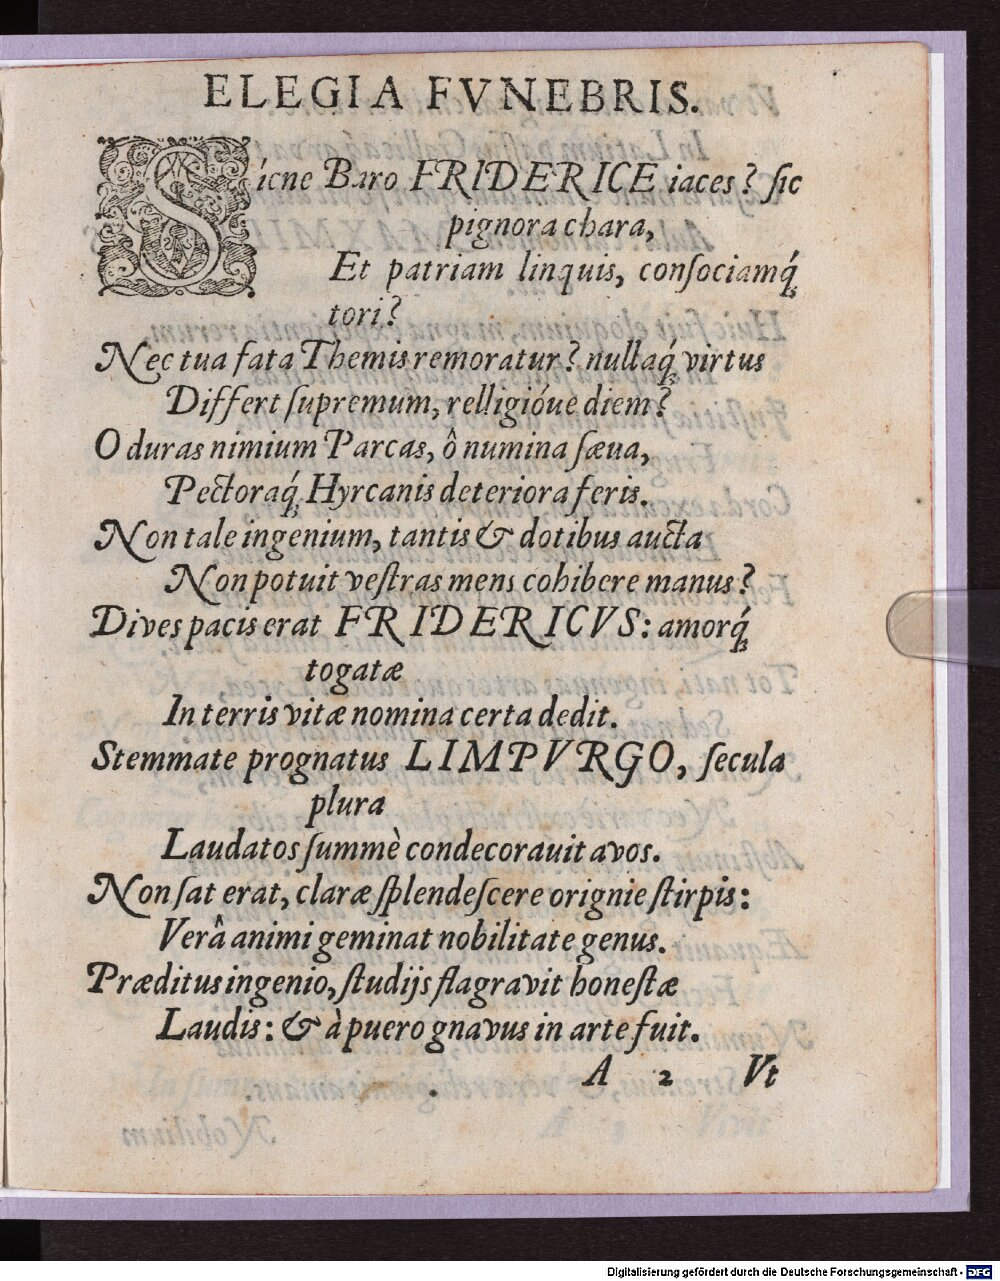 ELEGIA FVNEBRIS.
Sícne Baro FRIDERICE iaces? ſic
pignora chara,
Et patriam linquis, conſociamq́
tori?
Nec tua fata Themis remoratur? nullaq́ virtus
Differt ſupremum, relligióue diem?
O duras nimium Parcas, ô numina ſæua,
Pectoraq́ Hyrcanis deteriora feris.
Non tale ingenium, tantis & dotibus aucta
Non potuit veſtras mens cohibere manus?
Dives pacis erat FRIDERICVS: amorq́
togatæ
In terris vitæ nomina certa dedit.
Stemmate prognatus LIMPVRGO, ſecula
plura
Laudatos ſummè condecorauit avos.
Non ſat erat, claræ ſplendeſcere orignie ſtirpis:
Verâ animi geminat nobilitate genus.
Præditus ingenio, ſtudijs flagravit honeſtæ
Laudis: & à puero gnavus in arte fuit.
A 2 Vt
Digitalisierung gefördert durch die Deutsche Forschungsgemeinschaft - DFG